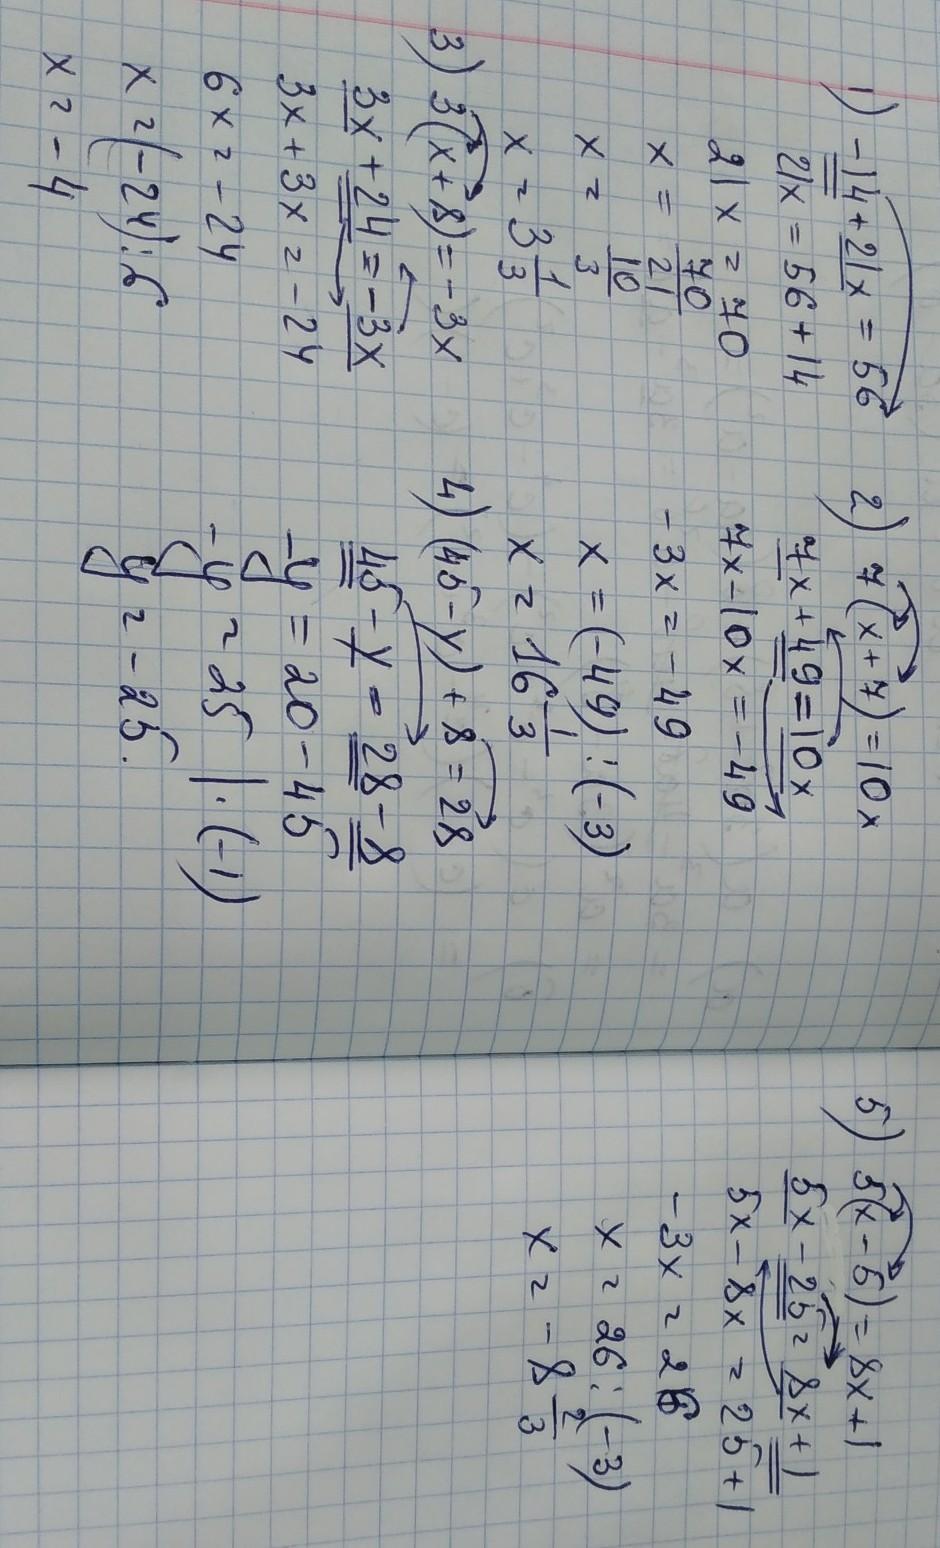 1) -14 + 21x = 56
21x = 56 + 14
21x = 70
x = 70/21
x = 10/3
x = 3 1/3
2) 7(x+7) = 10x
7x + 49 = 10x
7x - 10x = -49
-3x = -49
x = (-49) : (-3)
x = 16 1/3
3) 3(x+8) = -3x
3x + 24 = -3x
3x + 3x = -24
6x = -24
x = (-24) : 6
x = -4
4) (45 - y) + 8 = 28
45 - y = 28 - 8
-y = 20 - 45
-y = 25 | · (-1)
y = -25.
5) 5(x-5) = 8x+1
5x - 25 = 8x + 1
5x - 8x = 25 + 1
-3x = 26
x = 26 : (-3)
x = -8 2/3